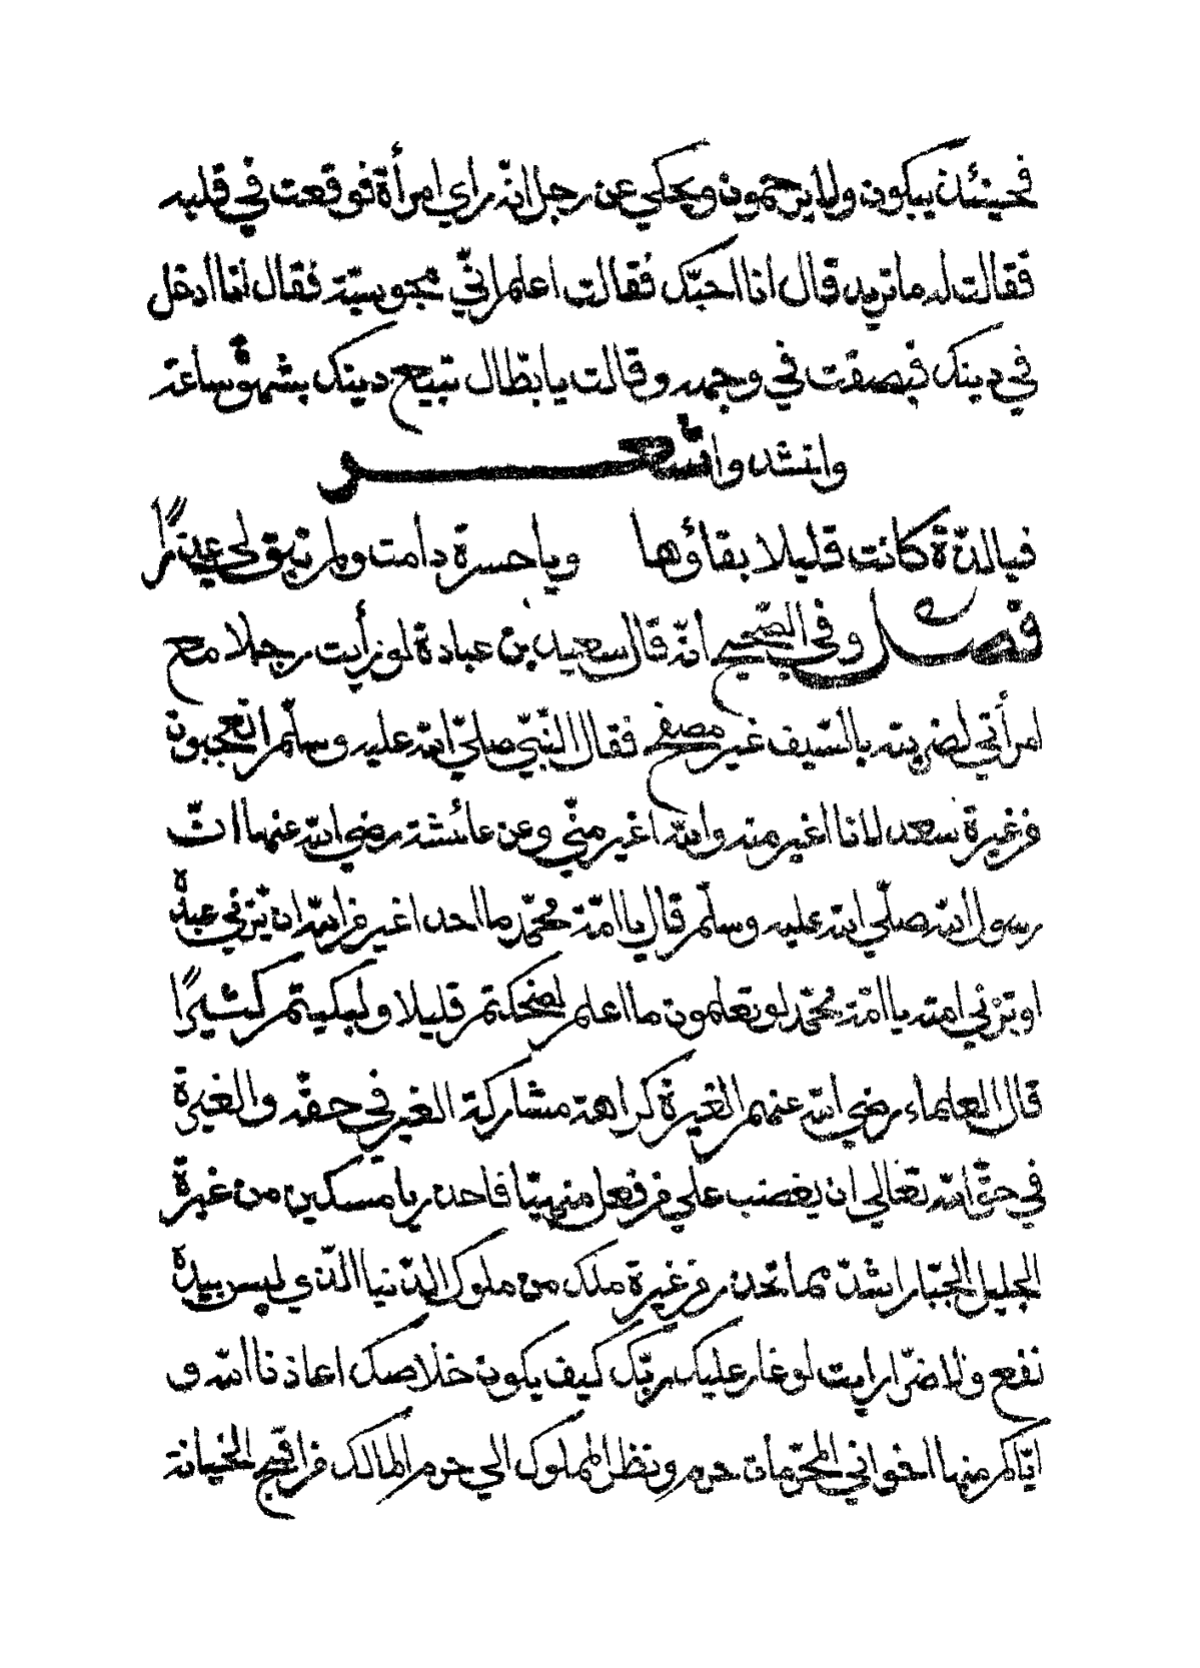 فحينئذ يبكون ولا يرحمون ويحكي عن رجل انّه راي امرأة فوقعت في قلبه
فقالت له ما تريد قال انا احبّك فقالت اعلم انّي مجوسيّة فقال انا ادخل
في دينك فبصقت في وجهه وقالت يا بطّال تبيع دينك بشهوة ساعة
وانشدوا شعر
فيا لذّة كانت قليلا بقاؤها ويا حسرة دامت ولم تبق لي عذرًا
فصل وفي الصّحيح انّه قال سعيد بن عبادة لو رأيت رجلا مع
امرأتي لضربته بالسّيف غير مصفح فقال النّبيّ صلّي الله عليه وسلّم اتعجبون
من غيرة سعد لانا اغير منه والله اغير منّي وعن عائشة رضي الله عنها انّ
رسول الله صلّي الله عليه وسلّم قال يا امّة محمّد ما احد اغير من الله ان يزني عبده
او تزني امته يا امّة محمّد لو تعلمون ما اعلم لضحكتم قليلا ولبكيتم كثيرًا
قال العلماء رضي الله عنهم الغيرة كراهة مشاركة الغير في حقّه والغيرة
في حقّ الله تعالي ان يغضب علي من فعل منهيّا فاحذر يا مسكين من غيرة
الجليل الجبّار اشدّ مما تحذر من غيرة ملك من ملوك الدّنيا الّذي ليس بيده
نفع ولا ضرّ ارايت لو غار عليك ربّك كيف يكون خلاصك اعاذنا الله و
ايّاكم منها اخواني المحرّمات حرم ونظر المملوك الي حرم المالك من اقبح الخيانة